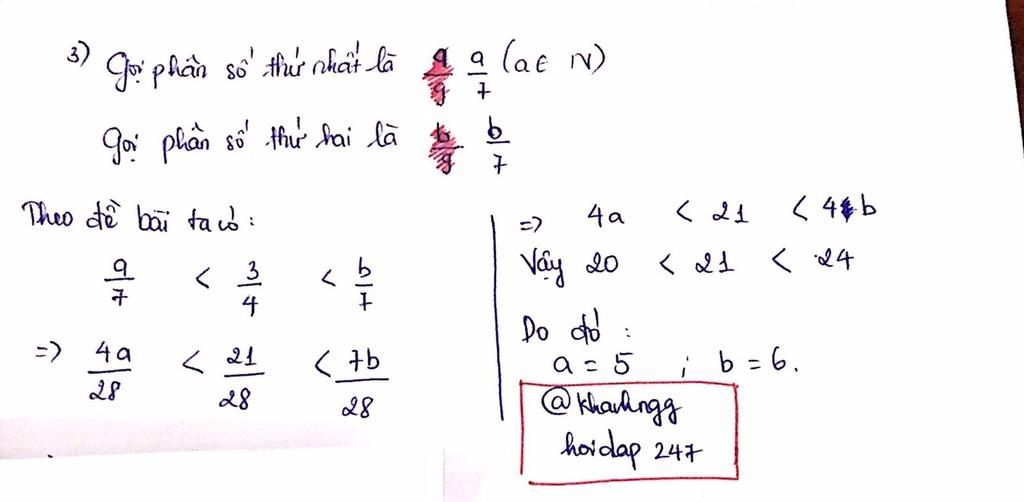 3) Gọi phân số thứ nhất là a/9 a/7 (a ∈ N)
Gọi phân số thứ hai là b/9 b/7
Theo đề bài ta có:
a/7 < 3/4 < b/7
=> 4a/28 < 21/28 < 7b/28
=> 4a < 21 < 4b
Vậy 20 < 21 < 24
Do đó :
a = 5 ; b = 6.
@khanhngg
hoidap 247